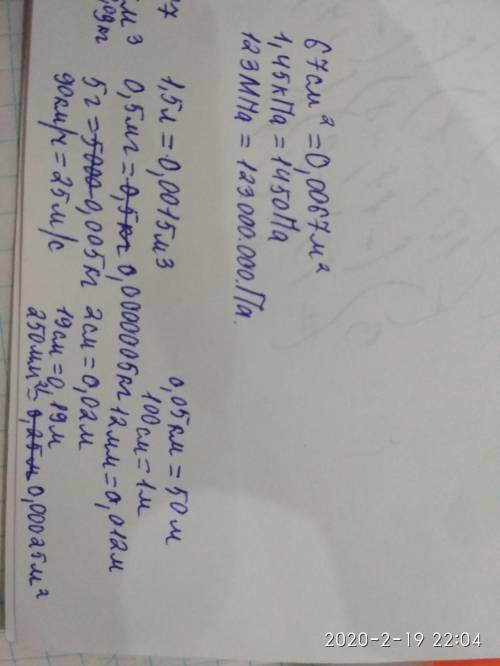 67см² = 0,0067м²
1,45кПа = 1450Па
123МПа = 123000.000.Па.
1,5л = 0,0015м3
0,5мг = 0,5кг 0,0000005кг
5г = 5000 0,005кг
90км/ч = 25м/с
0,05км = 50м
100см = 1м
12мм = 0,012м
2см = 0,02м
19см = 0,19м
250мм² = 0,25м 0,00025м²
м3
,09кг
2020-2-19 22:04